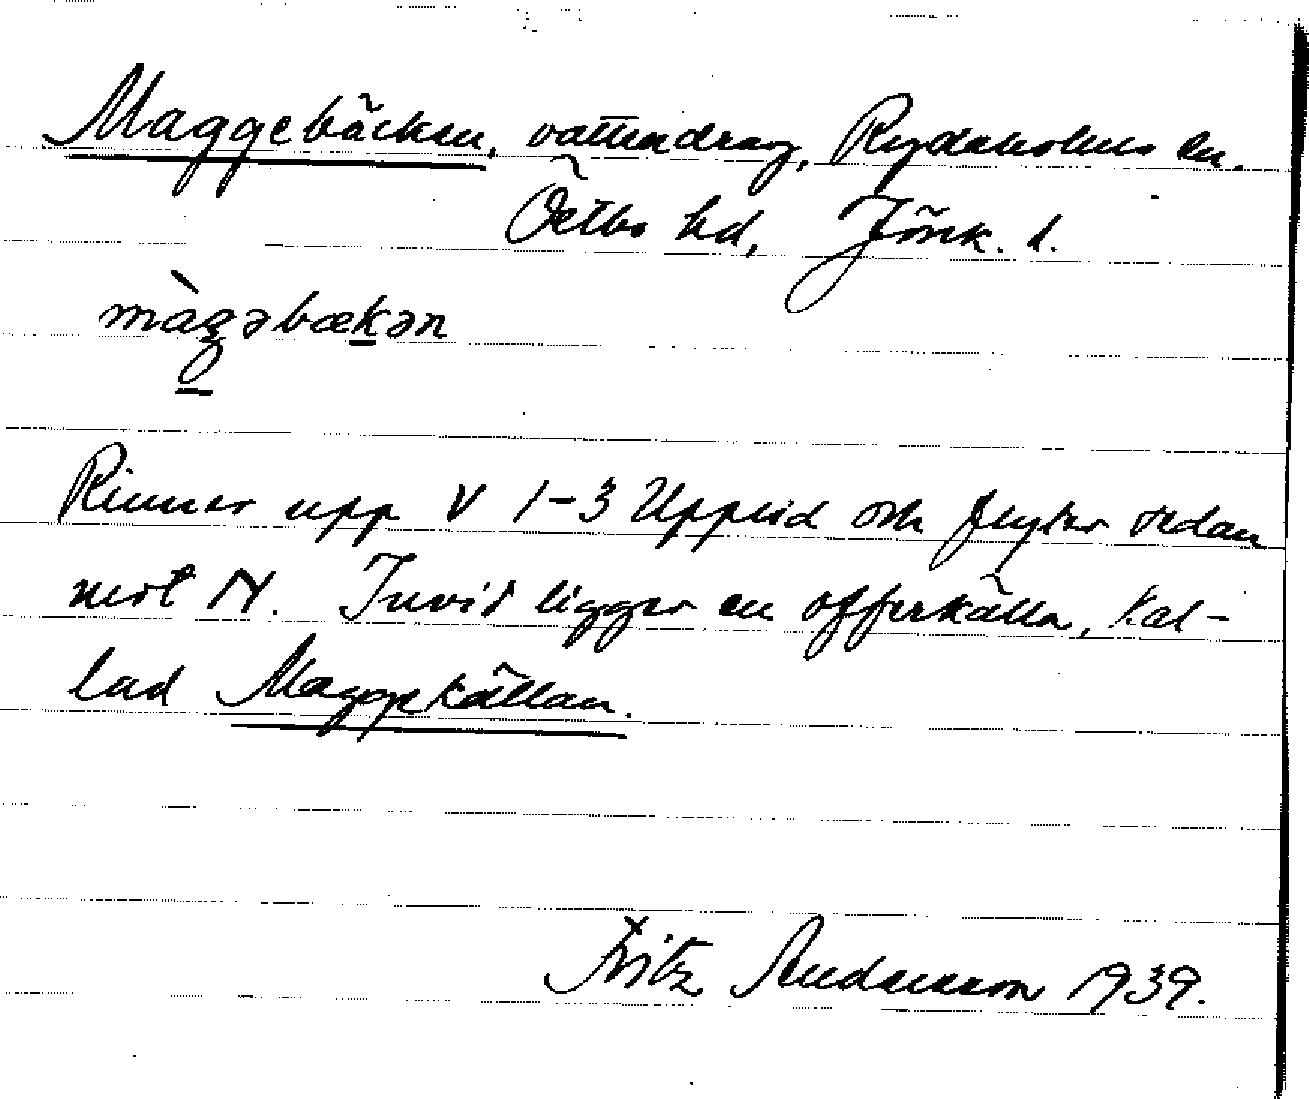 Maggebäcken, vattendrag, Rydaholms sn.
Östbo hd, Jönk. l.
màgəbækən
Rinner upp V 1-3 Upplid och flyter sedan
mot N. Invid ligger en offerkälla, kal-
lad Maggekällan.
Fritz Andersson 1939.